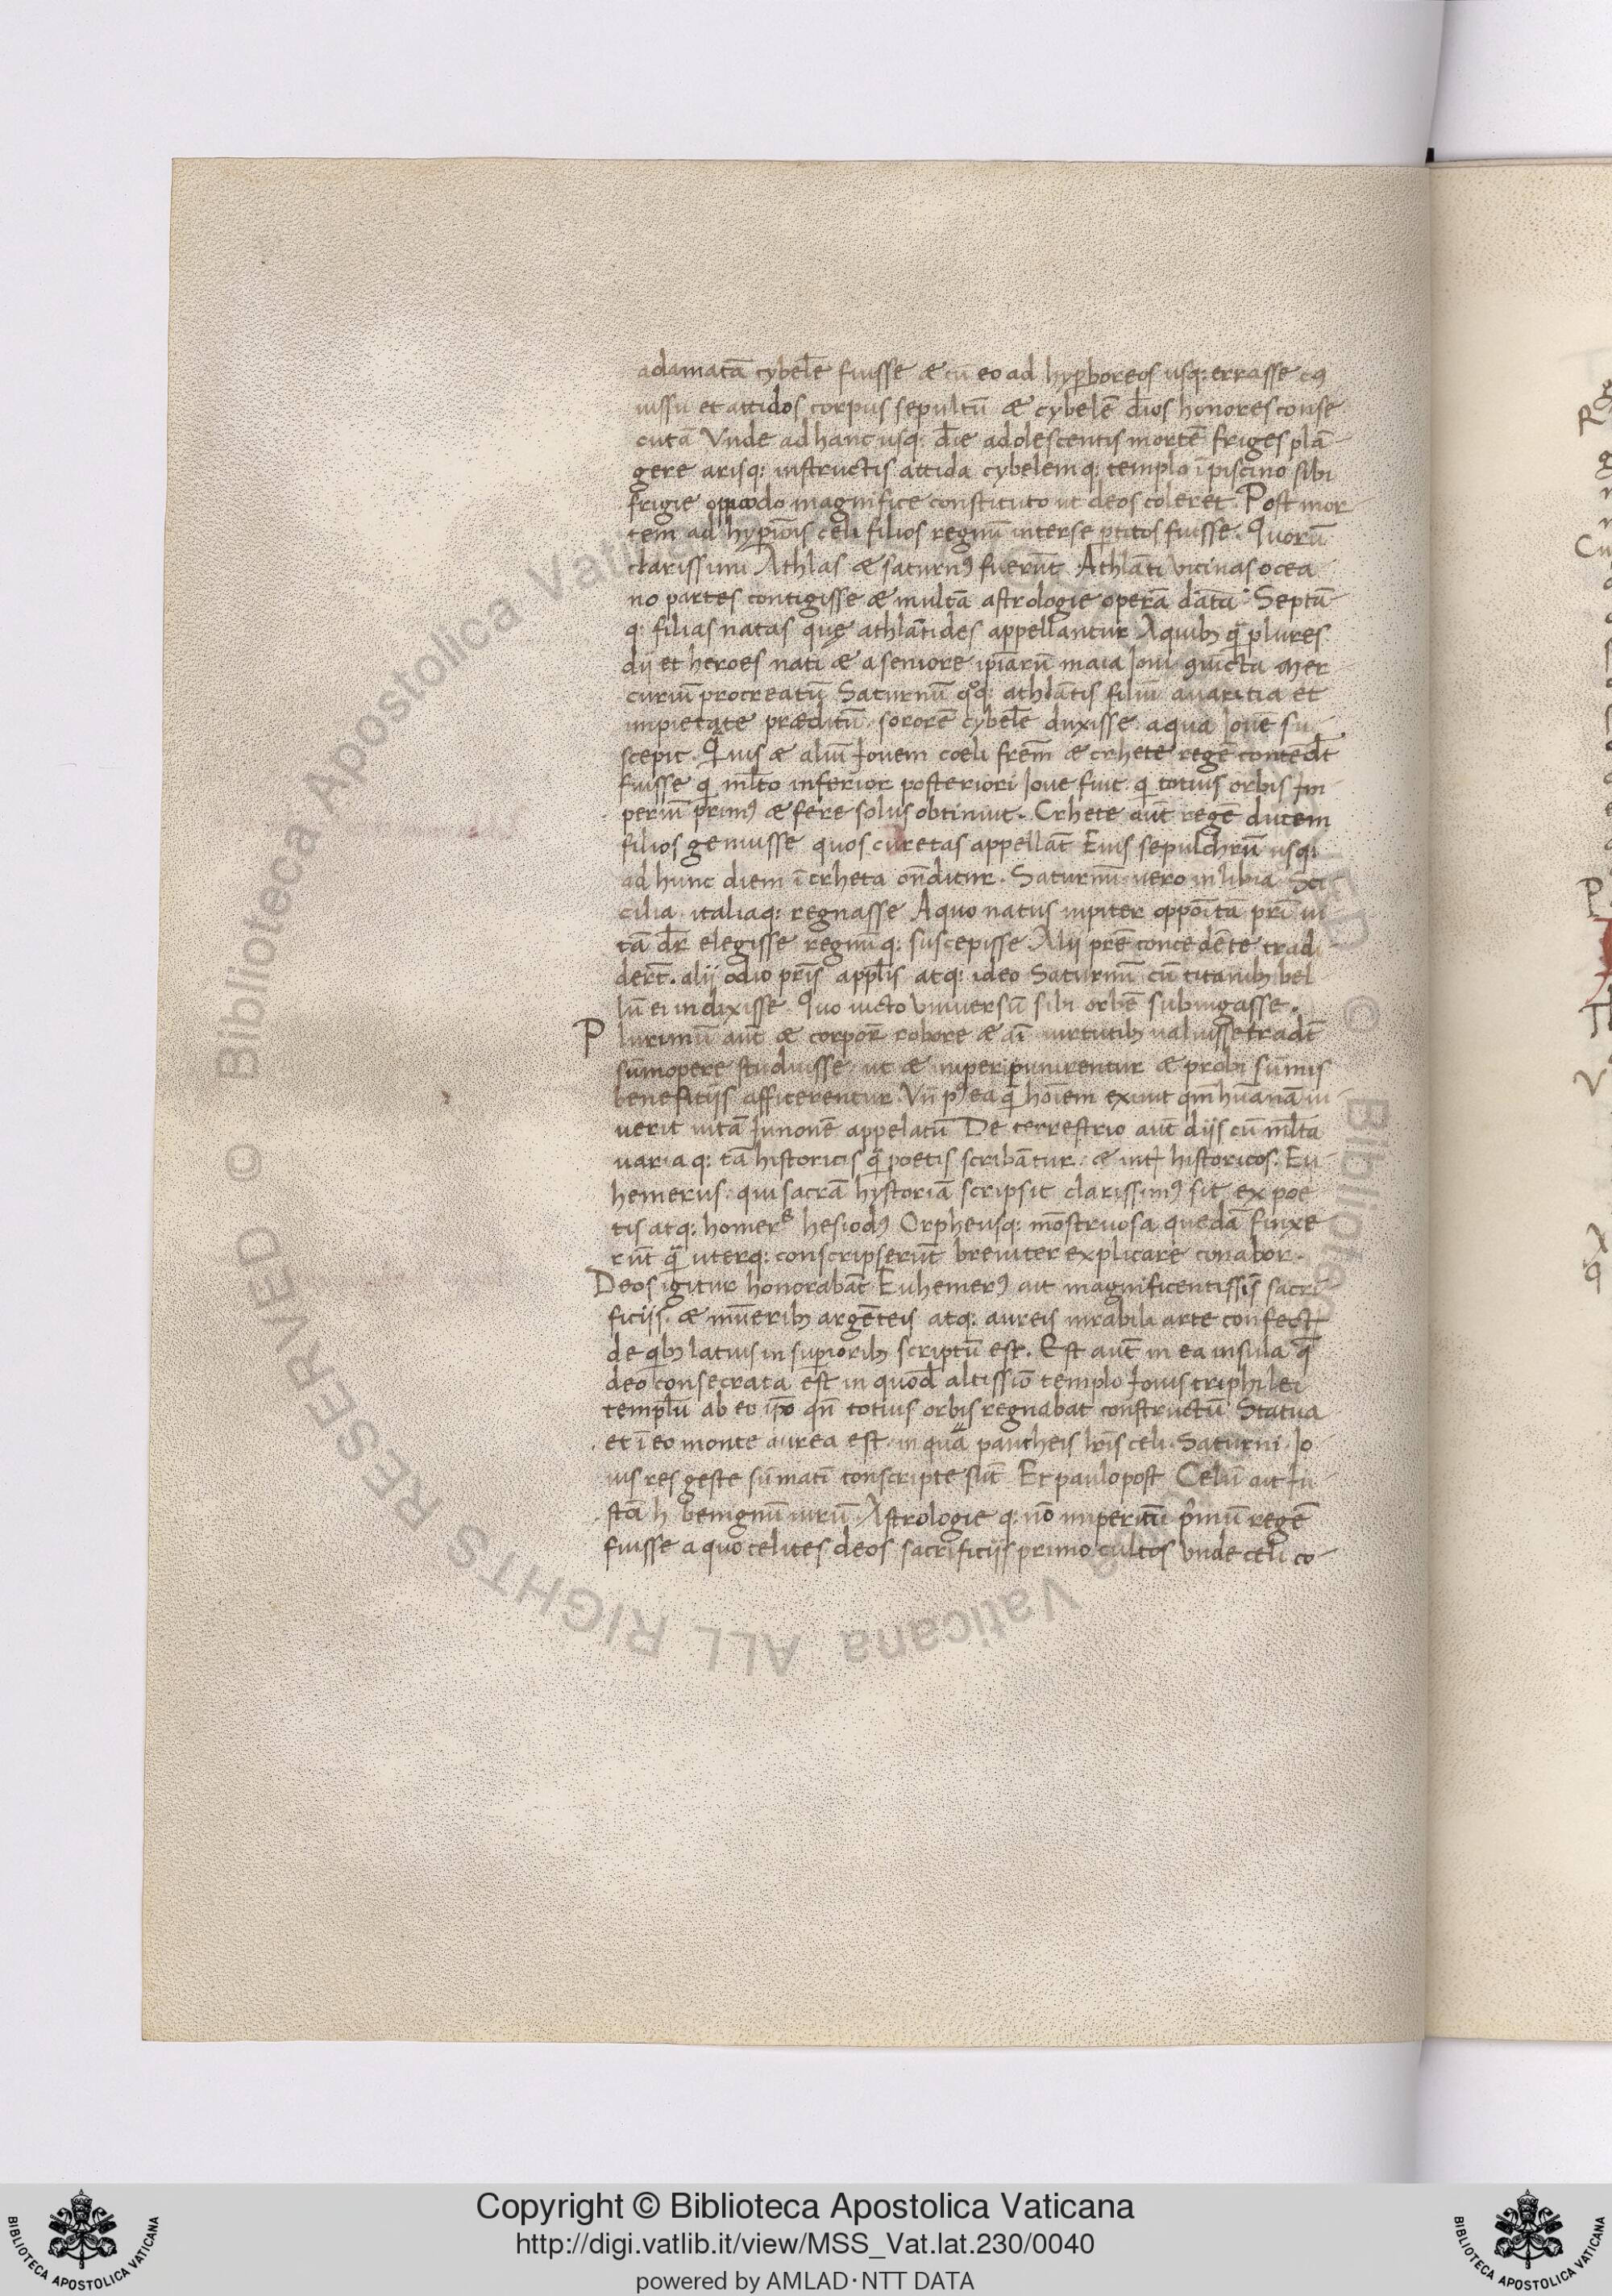 adamatā cybelē fuisse & cū eo ad hyꝑboreos usq: errasse eꝰ
iussu et attidos corpus sepultū & cybelē dīos honores conse
cutā Vnde ad hanc usq: die adolescentis mortē friges plā-
gere arisq: instructis attida cybelemq: templo ī piscino sibi
frigie oppido magnifice constituto ut deos coleret. Post mor
tem ad hypiōis celi filios regnū inter se ꝑtitos fuisse. Quorū
clarissimi Athlas & saturnꝰ fuerūt Athlāti vicinas ocea
no partes contigisse & multā astrologie operā datā. Septū
q: filias natas quę athlātides appellantur A quibꝫ q̄ plures
dij et heroes nati & a seniore ipīarū maia Ioui ꝯiūcta Mer
curiū procreatū Saturnū qͦq: athlātis filiū auaritia et
impietate præditū sororē cybelē duxisse a qua Iouē su
scepit. Qͥuis & aliū Iouem coeli frēm & crhete regē contēdt
fuisse q̇ mlto inferior posteriori Ioue fuit q̇ totius orbis Im
periū primꝰ & fere solus obtinuit. Crhete aūt regē ducem
filios genuisse quos curetas appellāt Eius sepulchrū usq:
ad hunc diem ī crheta on̄ditur. Saturnū uero in libia Sci
cilia italiaq: regnasse A quo natus iupiter oppoītā prī ui
tā dr̄ elegisse regnūq: suscepisse Alij prē concedēte tradi-
derēt. alij odio prīs applīs atq: ideo Saturnū cū titanibꝫ bel
lū ei indixisse. Quo uicto vniuersū sibi orbē subiugasse.
Plurimū aūt & corpor̄ robore & aī uirtutibꝫ ualuisse tradūt
sūmopere studuisse ut & imperi punirentur & probi sūmis
beneficijs afficerentur. Vn̄ pꝰea q̇ hoīem exiuit qm̄ hūanā iu
uerit uitā Iunonē appelatū De terrestrio aūt dijs cū mlta
uariaq: tā historicis q̄ poetis scribātur. & int̄ historicos. Eu-
hemerus qui sacrā hystoriā scripsit clarissimꝰ sit ex poe
tis atq: homerᵉ hesiodꝰ Orpheusq: mōstruosa quedā finxe
rūt q̄ uterq: conscripserūt breuiter explicare conabor.
Deos igitur honorabāt Euhemerꝰ ait magnificentissīs sacri
ficijs & mūeribꝫ argēteis atq: aureis mirabili arte confect
de q̇bꝫ latius in suꝑioribꝫ scriptū est. Est aūt in ea insula q̄
deo consecrata est in quod altissīo templo Iouis triphilei
templū ab eo ipō qn̄ totius orbis regnabat constructū Statua
et ī eo monte aurea est in quā pantheis lrīs celi. Saturni. Io
uis res geste sūmatī conscripte sūt Et paulo post Celū ait Iu
stū h benignū uirū. Astrologie q: nō imperitū pͥmū regē
fuisse a quo celites deos sacrificijs primo cultos vnde celi co-
Copyright © Biblioteca Apostolica Vaticana
http://digi.vatlib.it/view/MSS_Vat.lat.230/0040
powered by AMLAD·NTT DATA